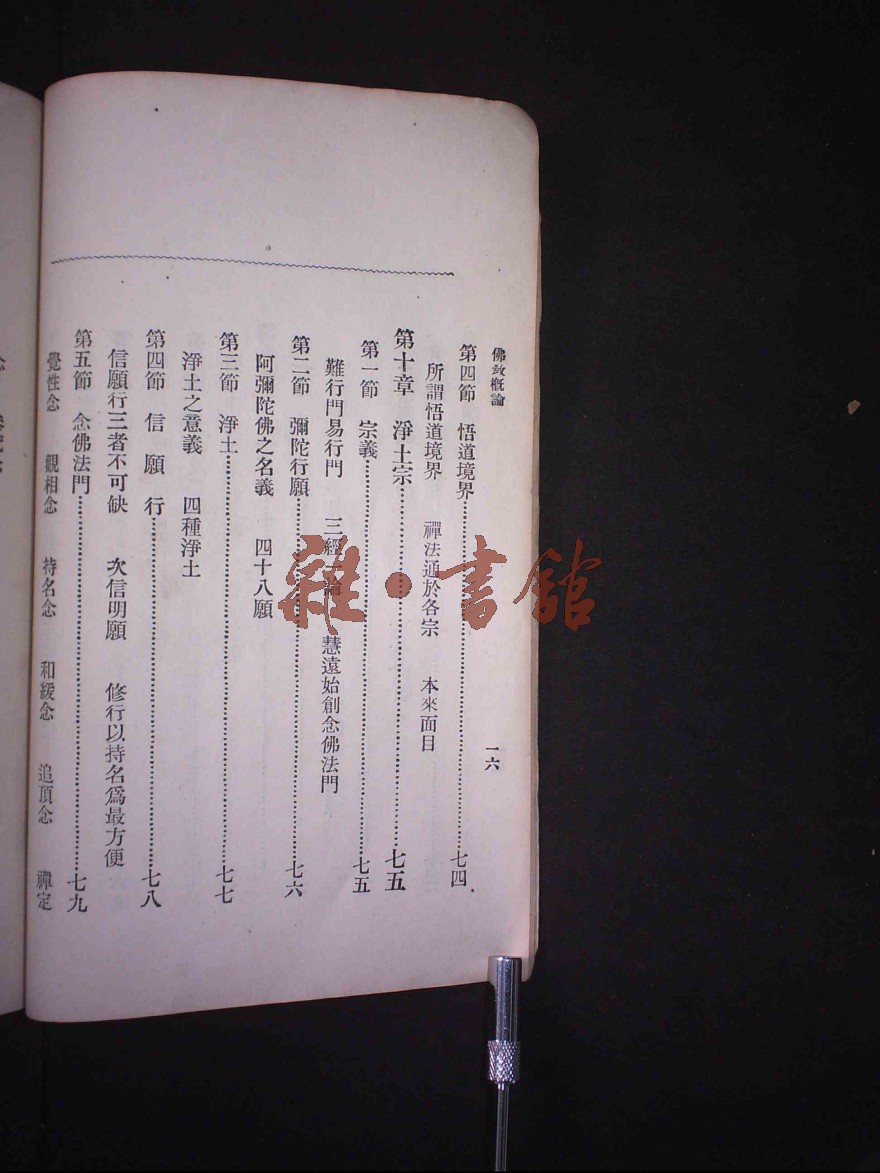 佛教概論
一六
第四節 悟道境界…………七四
所謂悟道境界 禪法通於各宗 本來面目
第十章 淨土宗…………七五
第一節 宗義…………七五
難行門易行門 三經一論 慧遠始創念佛法門
第二節 彌陀行願…………七六
阿彌陀佛之名義 四十八願
第三節 淨土…………七七
淨土之意義 四種淨土
第四節 信願行…………七八
信願行三者不可缺 次信明願 修行以持名爲最方便
第五節 念佛法門…………七九
覺性念 觀相念 持名念 和緩念 追頂念 禪定
雜·書館